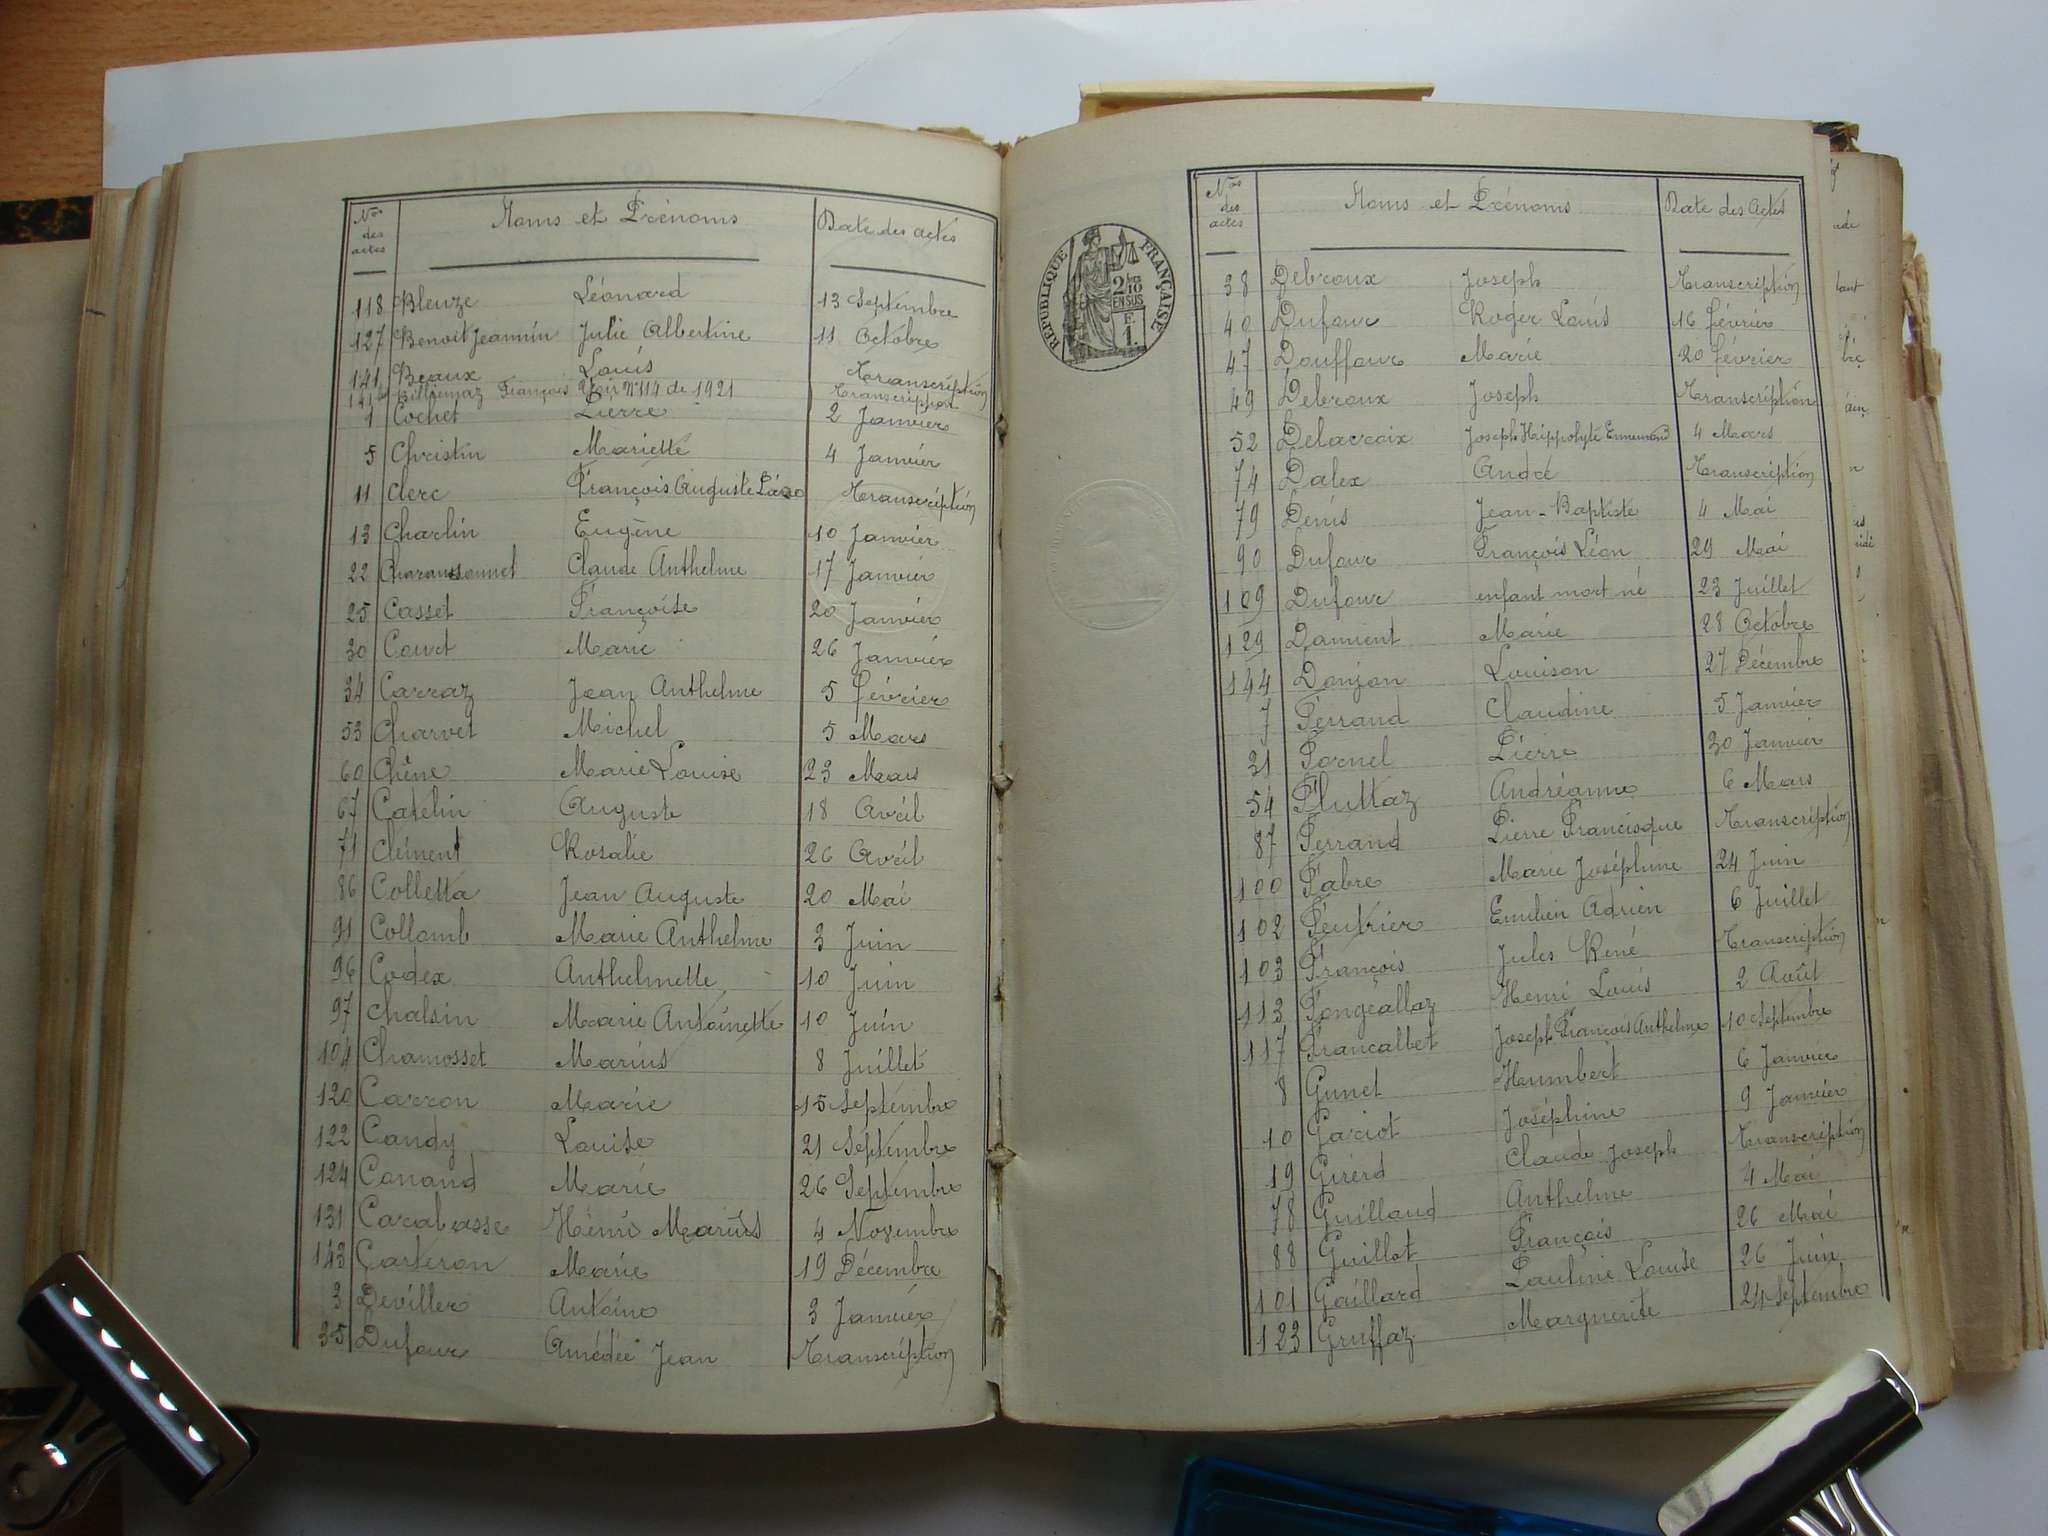 Nos des actes Noms et Prénoms Date des actes
118 Bleuze Léonard 13 Septembre
127 Benoit Jeannin Julie Albertine 11 Octobre
141 Beaux Louis Transcription
141 bis Billiemaz François Voir N°114 de 1921 Transcription
1 Cochet Pierre 2 Janvier
5 Christin Mariette 4 Janvier
11 Clerc François Auguste Transcription
13 Charlin Eugène 10 Janvier
22 Charansonnet Claude Anthelme 17 Janvier
25 Casset Françoise 20 Janvier
30 Court Marie 26 Janvier
34 Carraz Jean Anthelme 5 Février
53 Charvet Michel 5 Mars
60 Chêne Marie Louise 23 Mars
67 Catelin Auguste 18 Avril
71 Clément Rosalie 26 Avril
86 Colletta Jean Auguste 20 Mai
91 Collomb Marie Anthelme 3 Juin
96 Codex Anthelmette 10 Juin
97 Chalsin Marie Antoinette 10 Juin
104 Chamosset Marius 8 Juillet
120 Carron Marie 15 Septembre
122 Candy Louise 21 Septembre
124 Canand Marie 26 Septembre
131 Caralasse Henri Marius 4 Novembre
143 Carteron Marie 19 Décembre
3 Deviller Antoine 3 Janvier
35 Dufour Amédée Jean Transcription
RÉPUBLIQUE FRANÇAISE
2/10
EN SUS
F.
1.
Nos des actes Noms et Prénoms Date des actes
38 Debroux Joseph Transcription
40 Dufour Roger Louis 16 Février
47 Douffour Marie 20 Février
49 Debroux Joseph Transcription
52 Delacroix Joseph Hippolyte Ennemond 4 Mars
74 Dalex André Transcription
79 Denis Jean-Baptiste 4 Mai
90 Dufour François Léon 29 Mai
109 Dufour enfant mort né 23 Juillet
129 Damient Marie 28 Octobre
144 Donjon Louison 27 Décembre
7 Ferrand Claudine 5 Janvier
31 Fornel Pierre 30 Janvier
54 Fluttaz Andréanne 6 Mars
87 Ferrand Pierre Francisque Transcription
100 Fabre Marie Joséphine 24 Juin
102 Feutrier Emilien Adrien 6 Juillet
103 François Jules René Transcription
113 Fongeallaz Henri Louis 2 Août
117 Francallet Joseph François Anthelme 10 Septembre
8 Gunet Humbert 6 Janvier
10 Gariot Joséphine 9 Janvier
19 Girerd Claude Joseph Transcription
78 Guilland Anthelme 4 Mai
88 Guillot François 26 Mai
101 Gaillard Pauline Louise 26 Juin
123 Gruffaz Marguerite 24 Septembre